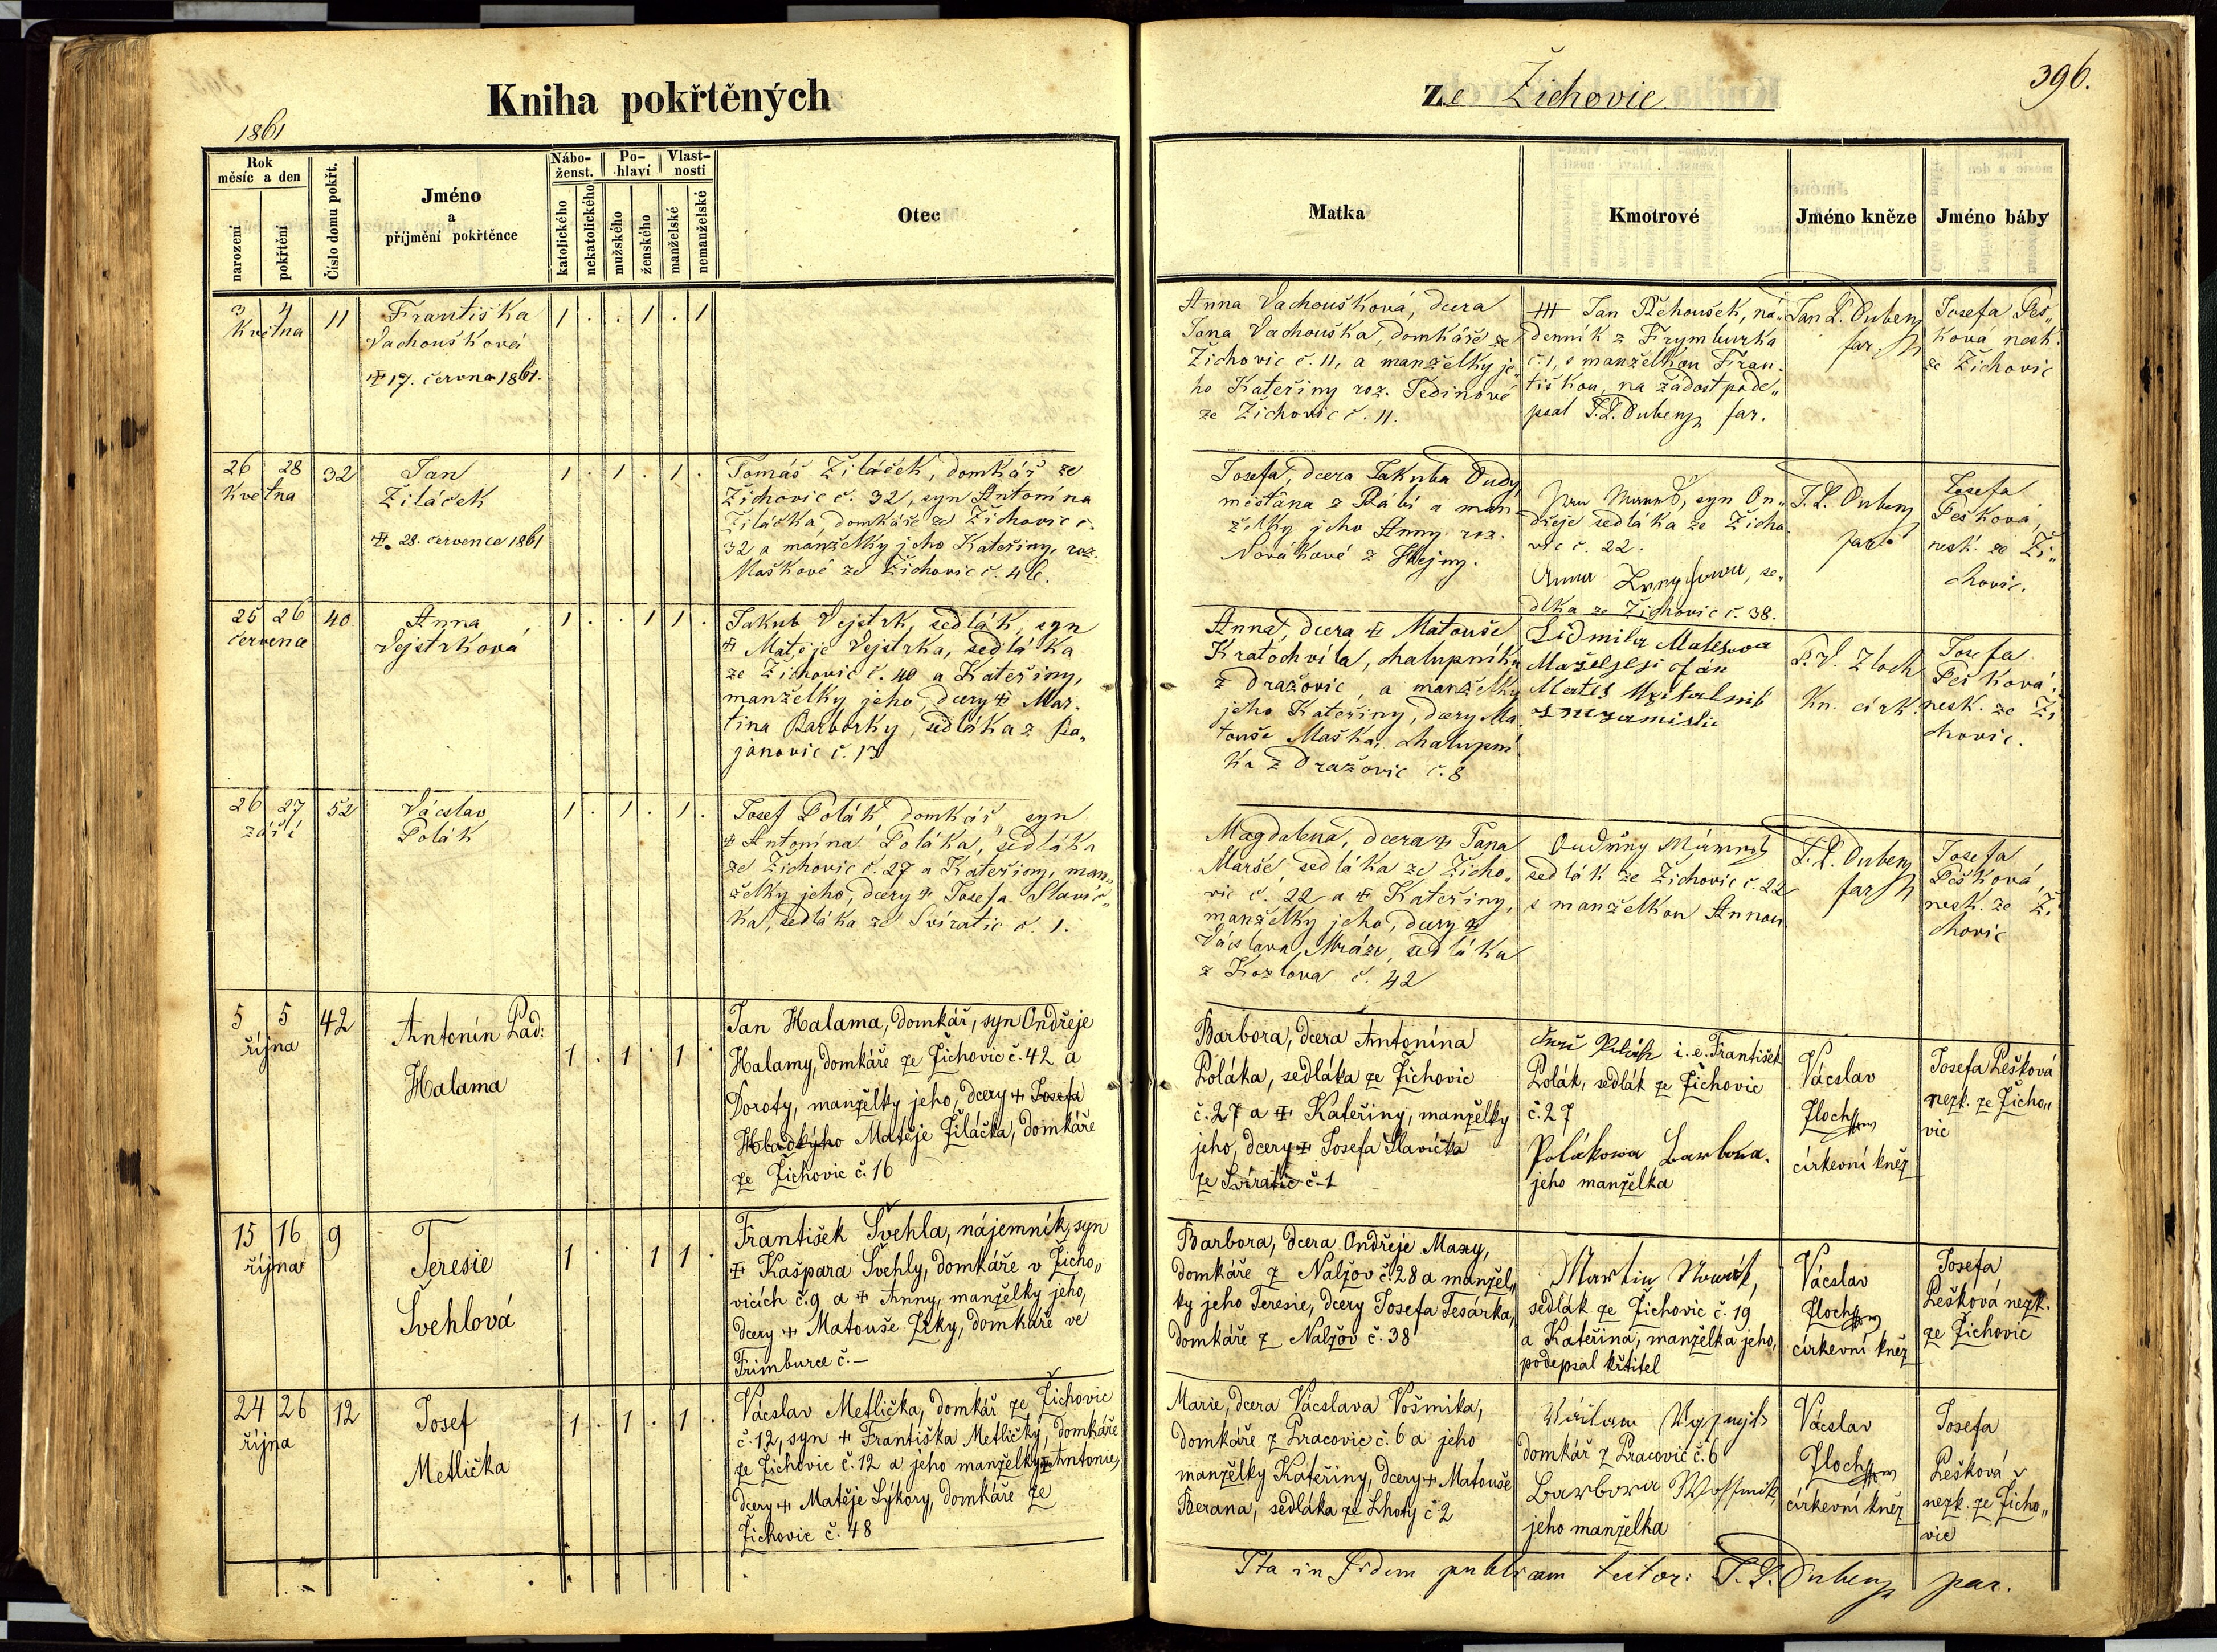 Kniha pokřtěných
ze Žichovic
396.
1861
Rok
měsíc a den
narození
pokřtění
Číslo domu pokřt.
Jméno
a
příjmění pokřtěnce
Nábo-
ženst.
katolického
nekatolického
Po-
hlaví
mužského
ženského
Vlast-
nosti
manželské
nemanželské
Otec
Matka
Kmotrové
Jméno kněze
Jméno báby
3 4
Května
11
Františka
Vachoušková
17. června 1861.
1 . . 1 . 1
Anna Vachoušková, dcera
Jana Vachouška, domkáře ze
Žichovic č. 11, a manželky je„
ho Kateřiny roz. Jedinové
ze Žichovic č. 11.
+++ Jan Řehoušek, ná„
denník z Frymburka
č. 1, s manželkou Fran„
tiškou, na žádost pode„
psal J. L. Dubenz far.
Jan L. Dubenz
far.
Josefa Peš„
ková, nezk.
ze Žichovic
26 28
Května
32
Jan
Žiláček
28. července 1861
1 . 1 . 1 .
Tomáš Žiláček, domkář ze
Žichovic č. 32, syn Antonína
Žiláčka, domkáře ze Žichovic č.
32 a manželky jeho Kateřiny, roz.
Maškové ze Žichovic č. 46.
Josefa, dcera Jakuba Dudy,
měšťana z Rábí a man„
želky jeho Anny roz.
Novákové z Hejny.
syn On„
dřeje sedláka ze Žicho„
vic č. 22.
Anna se„
dlka ze Žichovic č. 38.
J. L. Dubenz
far.
Josefa
Pešková,
nezk. ze Ži„
chovic.
25 26
července
40
Anna
Vejstrková
1 . . 1 1 .
Jakub Vejstrk, sedlák, syn
Matěje Vejstrka, sedláka
ze Žichovic č. 40 a Kateřiny,
manželky jeho, dcery Mar„
tina Barborky, sedláka z Ra„
janovic č. 13
Anna, dcera Matouše
Kratochvíla, chalupníka
z Dražovic, a manželky
jeho Kateřiny, dcery Ma„
touše Maška, chalupní„
ka z Dražovic č. 8
Lidmila
P. V. Zloch
Kn. cirk.
Josefa
Pešková,
nezk. ze Ži„
chovic.
26 27
září
52
Václav
Polák
1 . 1 . 1 .
Josef Polák, domkář, syn
Antonína Poláka, sedláka
ze Žichovic č. 27 a Kateřiny, man„
želky jeho, dcery Josefa Slavíč„
ka, sedláka ze Svíratic č. 1.
Magdalena, dcera Jana
Marše, sedláka ze Žicho„
vic č. 22 a Kateřiny,
manželky jeho, dcery
Václava Mráze, sedláka
z Kozlova č. 42
sedlák ze Žichovic č. 22
s manželkou Annou
J. L. Dubenz
far.
Josefa
Pešková,
nezk. ze Ži„
chovic
5 5
října
42
Antonín Lad:
Halama
1 . 1 . 1 .
Jan Halama, domkář, syn Ondřeje
Halamy, domkáře ze Žichovic č. 42 a
Doroty, manželky jeho, dcery Josefa
Hladkýho Matěje Žiláčka, domkáře
ze Žichovic č. 16
Barbora, dcera Antonína
Poláka, sedláka ze Žichovic
č. 27 a Kateřiny, manželky
jeho, dcery Josefa Slavíčka
ze Svíratic č. 1
i. e. František
Polák, sedlák ze Žichovic
č. 27
Polákowa Barbora.
jeho manželka
Vácslav
Zloch
církevní kněz
Josefa Pešková
nezk. ze Žicho„
vic
15 16
října
9
Teresie
Švehlová
1 . . 1 1 .
František Švehla, nájemník, syn
Kašpara Švehly, domkáře v Žicho„
vicích č. 9 a Anny, manželky jeho,
dcery Matouše Zrky, domkáře ve
Frimburce č. —
Barbora, dcera Ondřeje Maxy,
domkáře z Nalžov č. 28 a manžel„
ky jeho Teresie, dcery Josefa Tesárka,
domkáře z Nalžov č. 38
Martin Nowák,
sedlák ze Žichovic č. 19
a Kateřina, manželka jeho,
podepsal křtitel
Vácslav
Zloch
církevní kněz
Josefa
Pešková nezk.
ze Žichovic
24 26
října
12
Josef
Metlička
1 . 1 . 1 .
Vácslav Metlička, domkář ze Žichovic
č. 12, syn Františka Metličky, domkáře
ze Žichovic č. 12 a jeho manželky Antonie,
dcery Matěje Sýkory, domkáře ze
Žichovic č. 48
Marie, dcera Vácslava Vošmika,
domkáře z Pracovic č. 6 a jeho
manželky Kateřiny, dcery Matouše
Berana, sedláka ze Lhoty č. 2
domkář z Pracovic č. 6
Barbora
jeho manželka
Vácslav
Zloch
církevní kněz
Josefa
Pešková
nezk. ze Žicho„
vic
Ita in fidem publicam testor: J. L. Dubenz par.